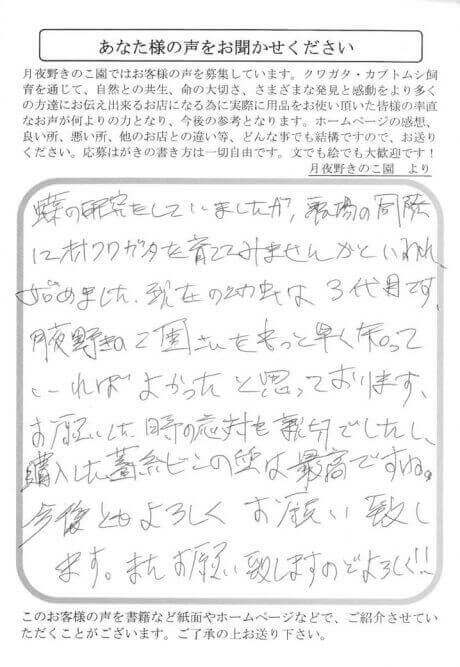 あなた様の声をお聞かせください
月夜野きのこ園ではお客様の声を募集しています。クワガタ・カブトムシ飼
育を通じて、自然との共生、命の大切さ、さまざまな発見と感動をより多く
の方達にお伝え出来るお店になる為に実際に用品をお使い頂いた皆様の率直
なお声が何よりの力となり、今後の参考となります。ホームページの感想、
良い所、悪い所、他のお店との違い等、どんな事でも結構ですので、お送り
ください。応募はがきの書き方は一切自由です。文でも絵でも大歓迎です！
月夜野きのこ園 より
蝶の研究をしていましたが、職場の同僚
にオオクワガタを育ててみませんかといわれ、
始めました。現在の幼虫は3代目です。
月夜野きのこ園さんをもっと早く知って
いればよかったと思っております。
お願いした時の応対も親切でしたし、
購入した菌糸ビンの質は最高ですね。
今後ともよろしくお願い致し
ます。またお願い致しますのでよろしく!!
このお客様の声を書籍など紙面やホームページなどで、ご紹介させてい
ただくことがございます。ご了承の上お送り下さい。